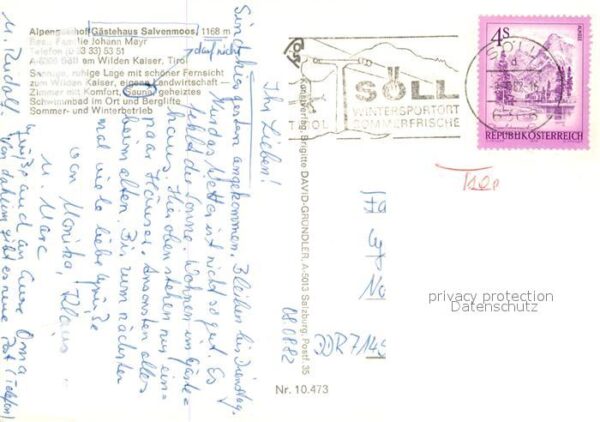 Alpengasthof Gästehaus Salvenmoos, 1168 m
Bes.: Familie Johann Mayr
Telefon (0 53 33) 53 51
A-6306 Söll am Wilden Kaiser, Tirol
Sonnige, ruhige Lage mit schöner Fernsicht
zum Wilden Kaiser, eigene Landwirtschaft
Zimmer mit Komfort, Sauna, geheiztes
Schwimmbad im Ort und Berglifte
Sommer- und Winterbetrieb
Ihr Lieben!
Sind gestern angekommen. Bleiben bis Dienstag.
Nur das Wetter ist nicht so gut. Es
fehlt die Sonne. Wohnen im Gäste-
haus. Hier oben stehen nur ein
paar Häuser. Ansonsten alles
beim alten. Bis zum nächsten
mal viele liebe Grüße
von Monika, Klaus
u. Marc
Grüße auch an Eure Oma
u. Rudolf.
Kunstverlag Brigitte DAVID-GRÜNDLER, A-5013 Salzburg, Postf. 35
Nr. 10.473
080882
TIROL
SÖLL
WINTERSPORTORT
SOMMERFRISCHE
4 S
ALMSEE
REPUBLIK ÖSTERREICH
SÖLL
6306
DDR 714
privacy protection
Datenschutz